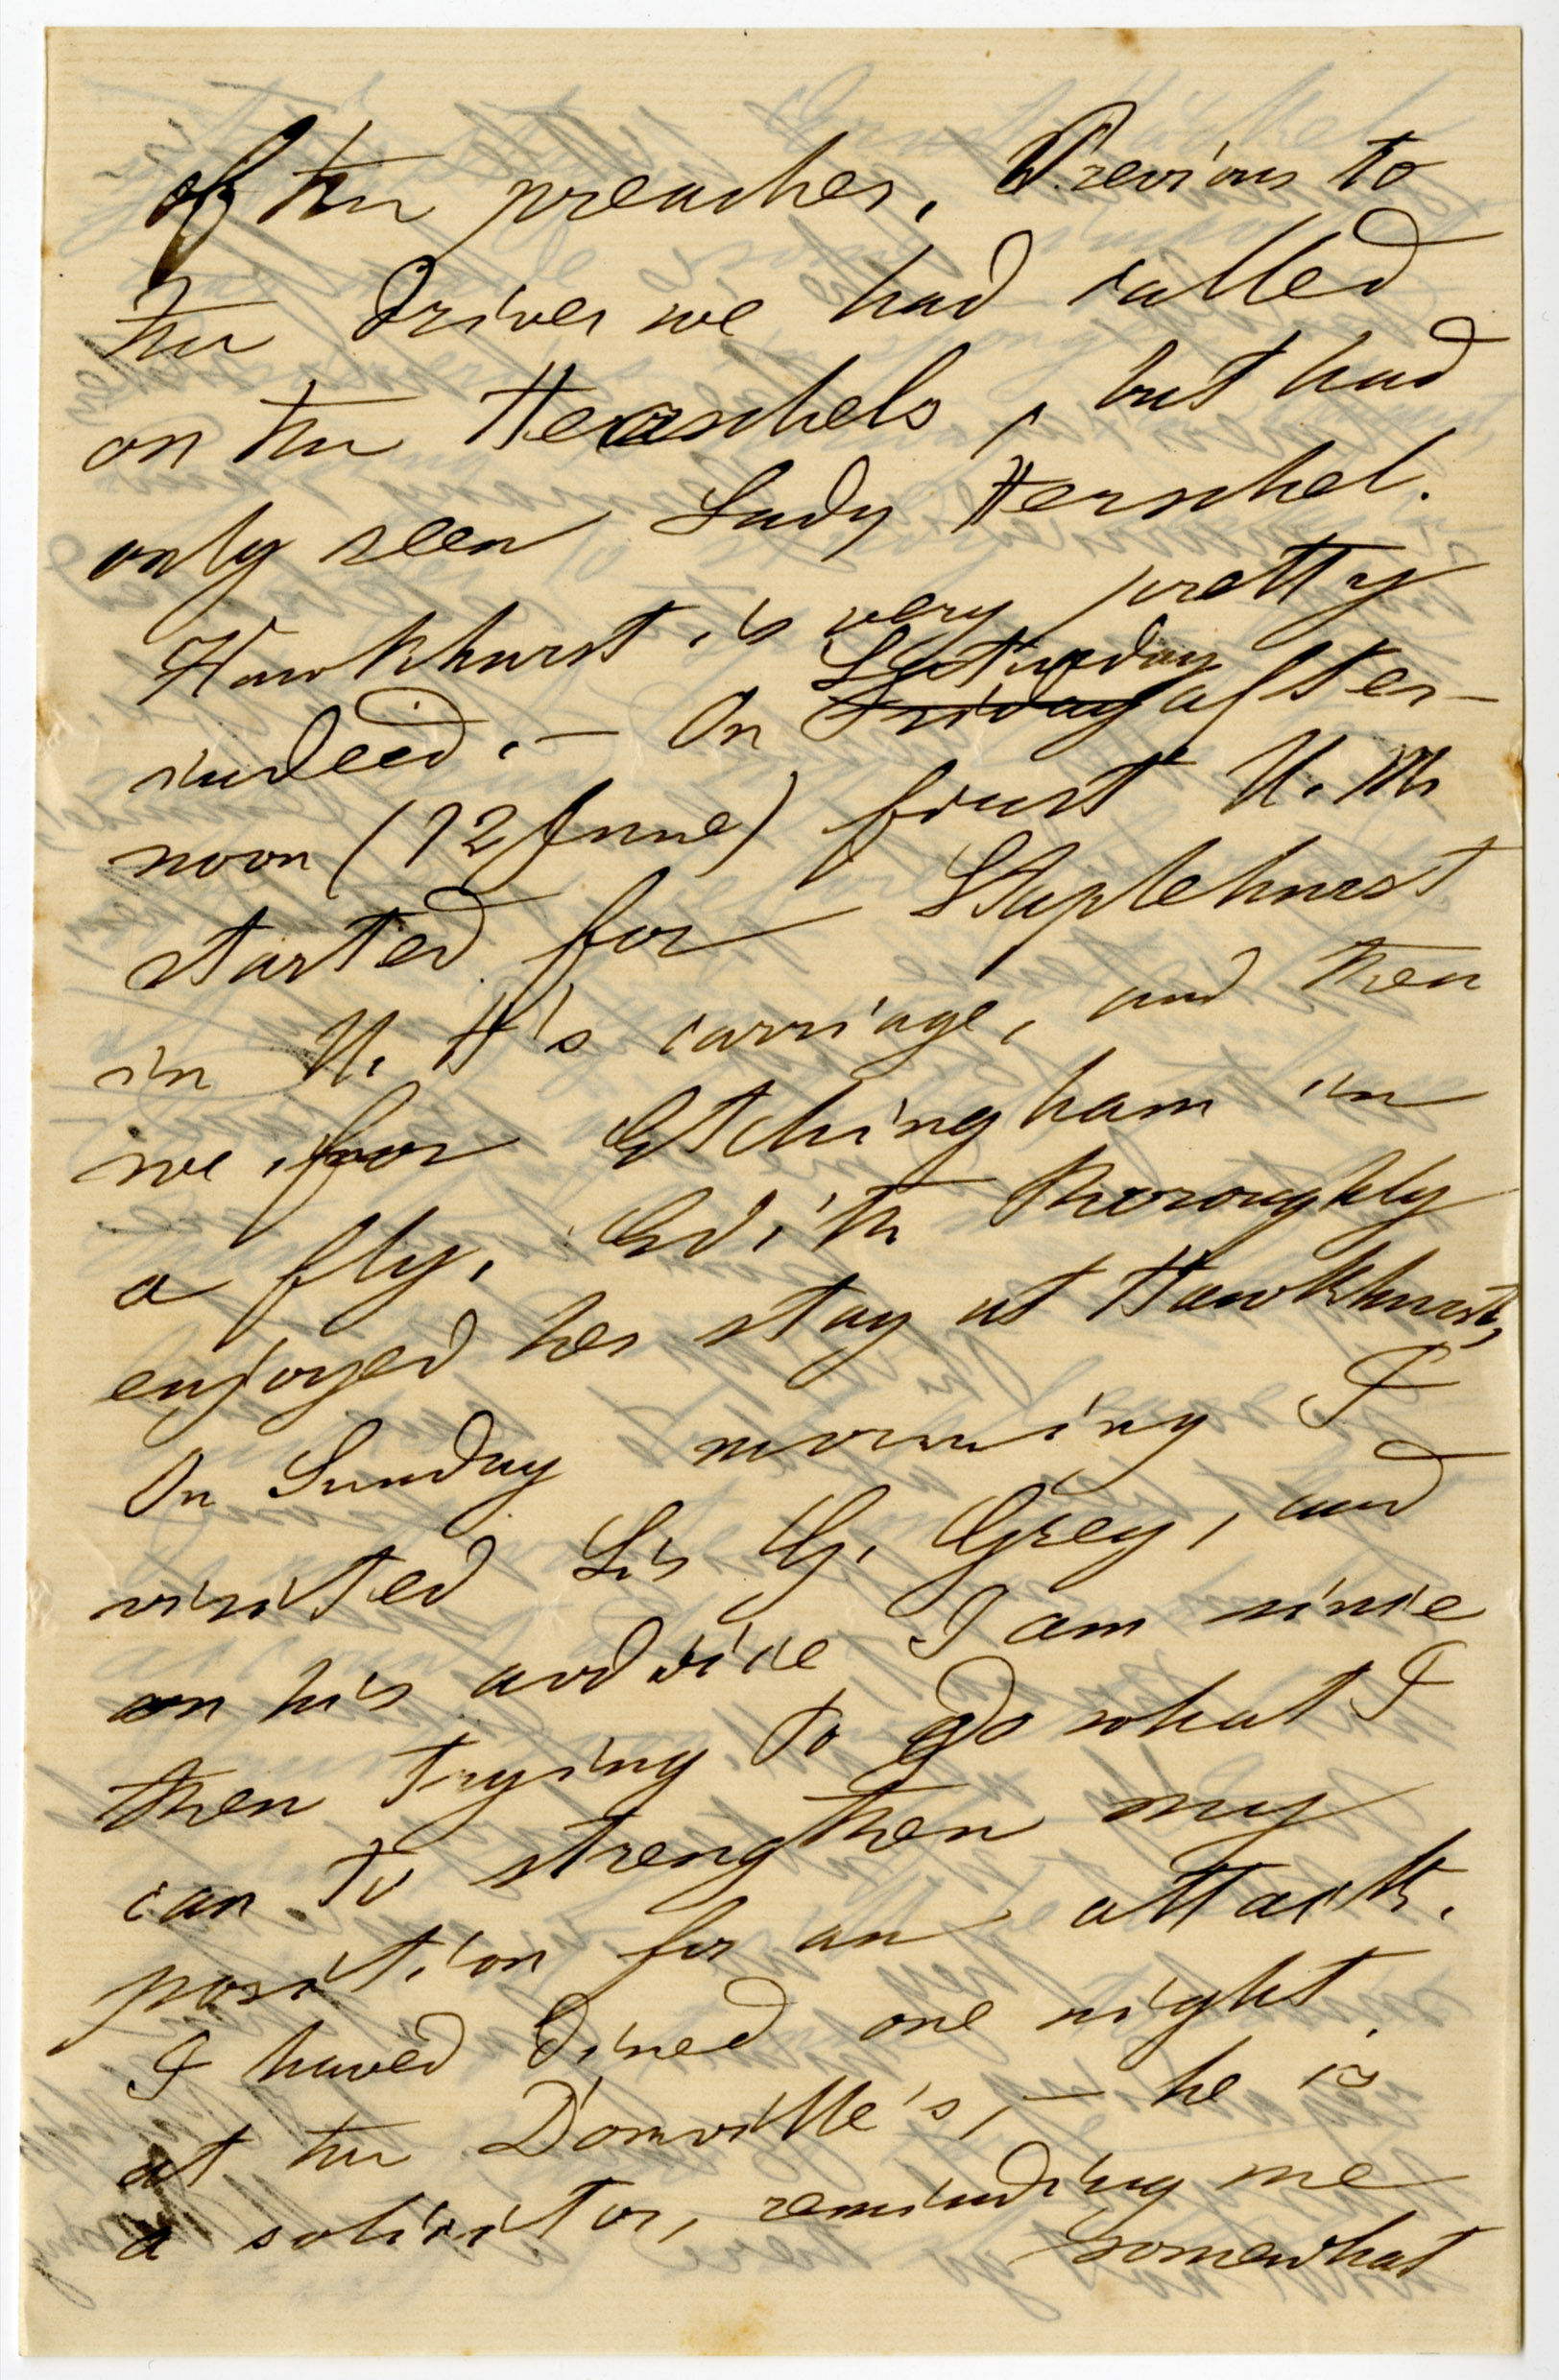 of the preacher. Previous to
the drives we had called
on the Herschels, but had
only seen Lady Herschel.
Hawkhurst is very pretty
indeed. — On Friday Saturday after-
noon (12 June) first U. M.
started for Staplehurst
in U. H's carriage, and then
we for Etchingham in
a fly. Edith thoroughly
enjoyed her stay at Hawkhurst,
On Sunday morning I
visited Sir G. Grey, and
on his advice I am since
then trying to do what I
can to strengthen my
position for an attack.
I haved dined one night
at the Domville's, — he is
a solicitor, reminding me
somewhat